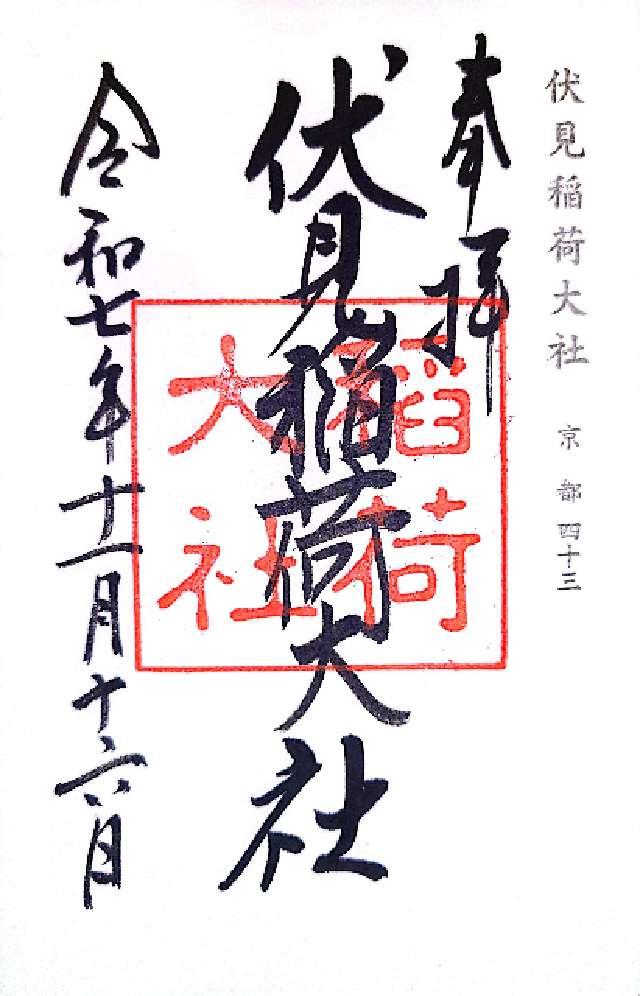 伏見稲荷大社 京都四十三
奉拝
伏見稲荷大社
稲荷
大社
令和七年十一月十六日